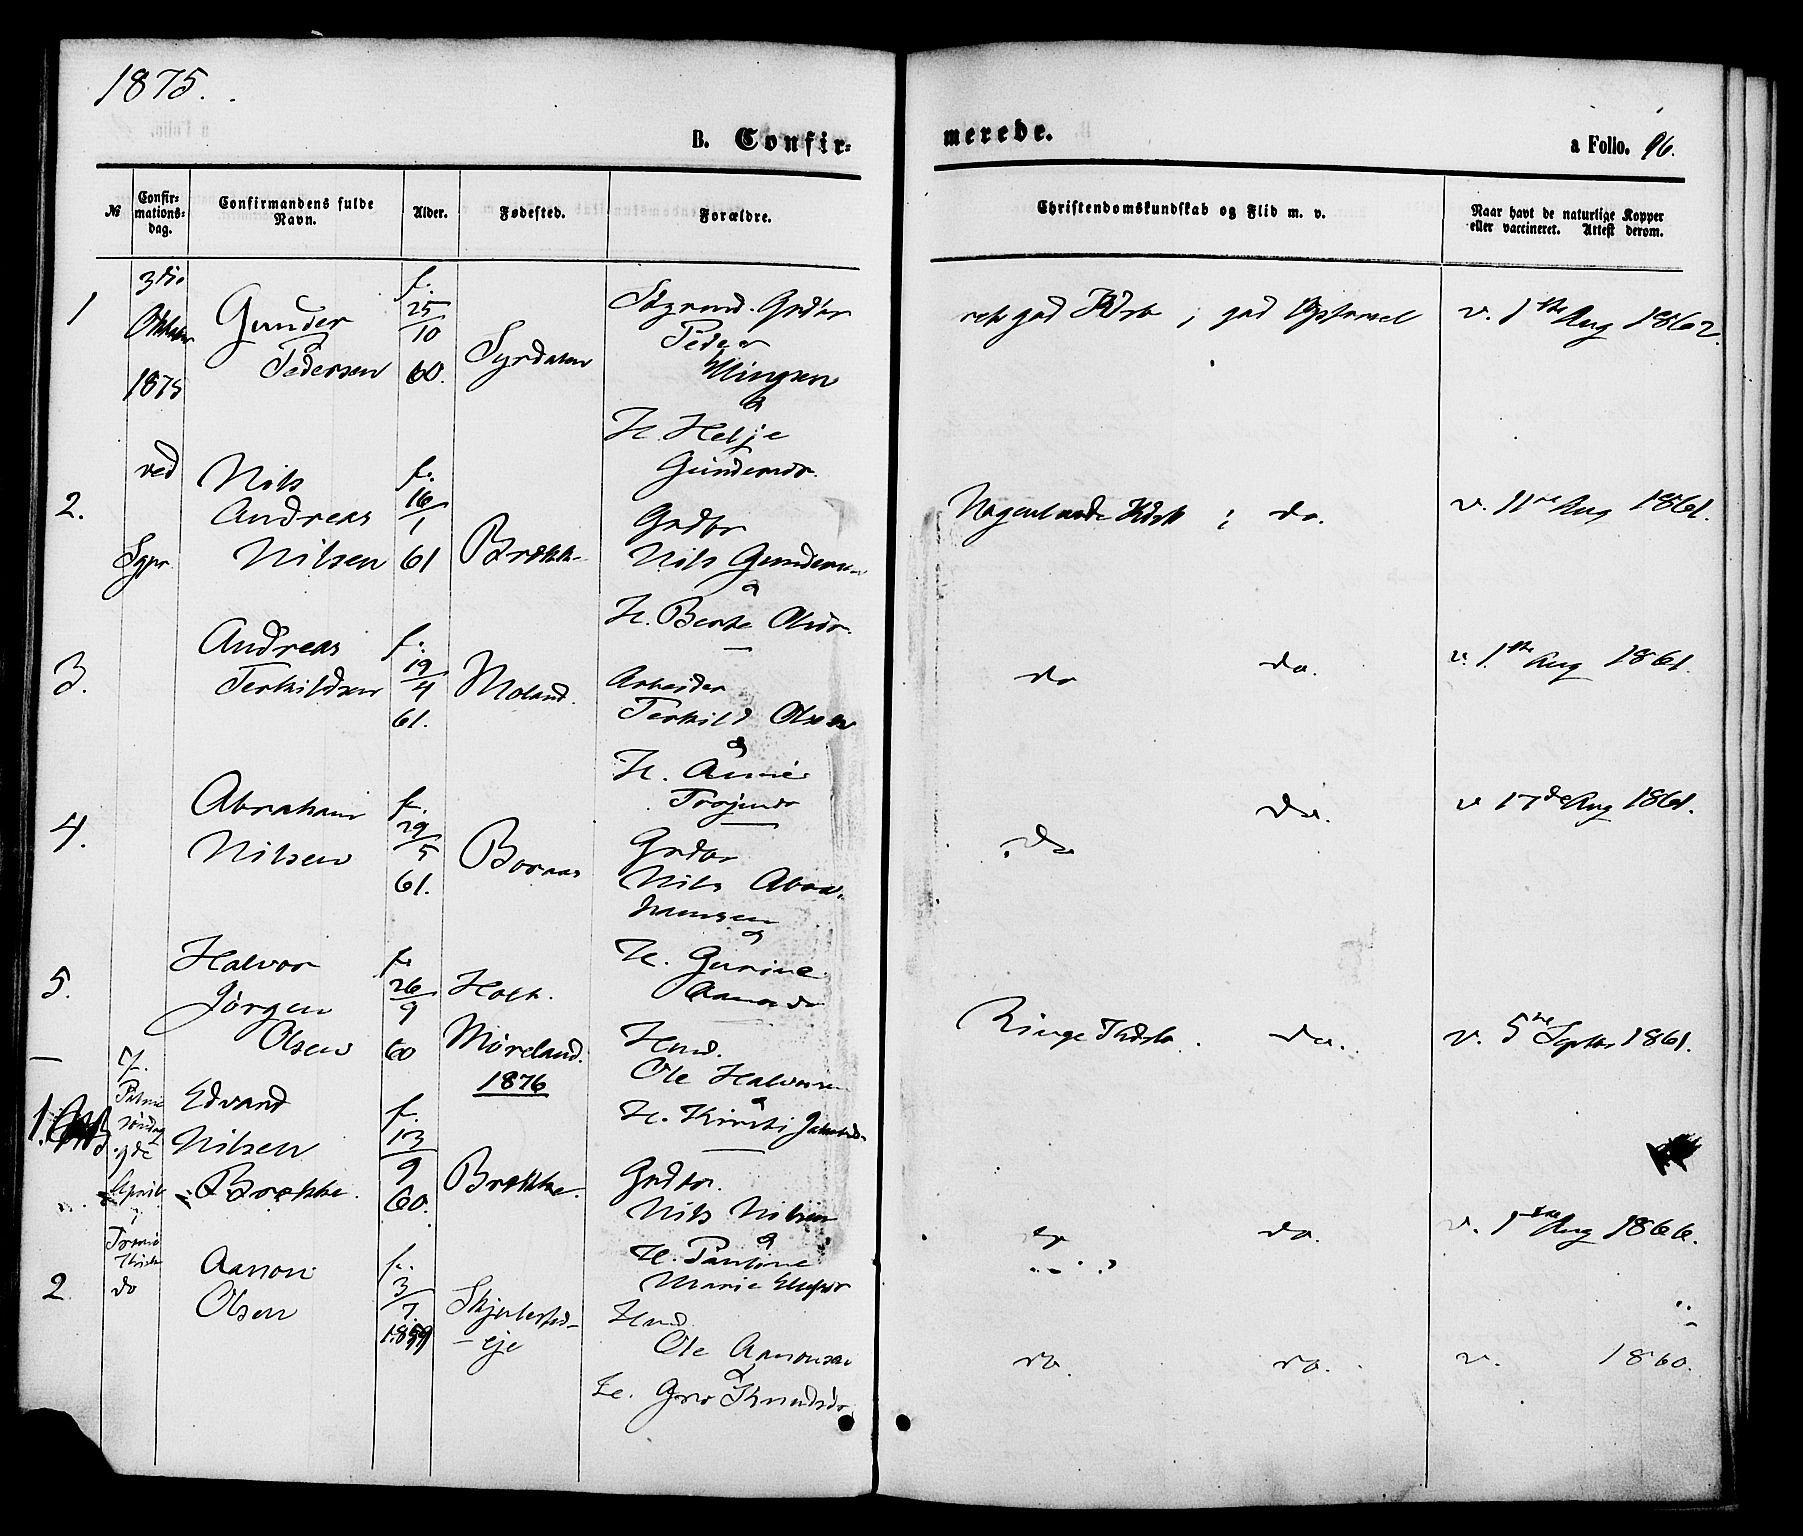 1875.
B. Confir-
merede.
a Folio. 96.
№
Confir-
mations-
dag.
Confirmandens fulde
Navn.
Alder.
Fødested.
Forældre.
Christendomskundskab og Flid m. v.
Naar havt de naturlige Kopper
eller vaccineret. Attest derom.
1
3die
Oktober
1875
ved
Gunder
Pedersen
f.
25/10
60.
Syrdalen
Grdbr
Peder
Ellingsen
&
H. Helje
Gundersdr.
god Kdsk ; god
v. 1ste Aug 1862.
2.
Nils
Andreas
Nilsen
f.
16/1
61
Brække
Grdbr
Nils Gundersen
&
H. Berte Olsdr.
Nogenlunde Kdsk ; do.
v. 11te Aug 1861.
3.
Andreas
Terkildsen
f.
19/4
61.
Moland.
Arbeider
Terkild Olsen
&
H. Anne
do
do.
v. 1ste Aug 1861.
4.
Abraham
Nilsen
f.
29/5
61.
Boraas
Grdbr
Nils Abra-
hamsen
&
H. Gurine
do
do.
v 17de Aug 1861.
5.
Halvor
Jørgen
Olsen
f.
26/9
60
Holt.
Møreland.
Hmd.
Ole Halvorsen
&
H. Kirsti
Ringe Kdsk.
do.
v. 5te Septbr 1861.
1876
1.
Palme
søndag
9de
April
Edvard
Nilsen
Brække.
f.
13/9
60.
Brække.
Grdbr.
Nils Nilsen
&
H. Pauline
Marie
do.
v. 1ste Aug 1866.
2
do
Aanon
Olsen
f.
3/7
1859
eje
Hmd.
Ole Aanonsen
&
H. Gro Knudsdr
do.
do.
v. 1860.